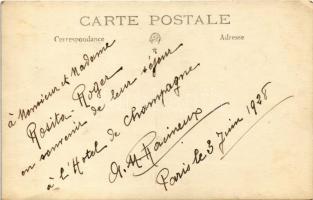 CARTE POSTALE
Correspondance
Adresse
à Monsieur et Madame
Rosita - Roger
en souvenir de leur séjour
à l'Hotel de Champagne
A. M. Racineux
Paris le 3 Juin 1928